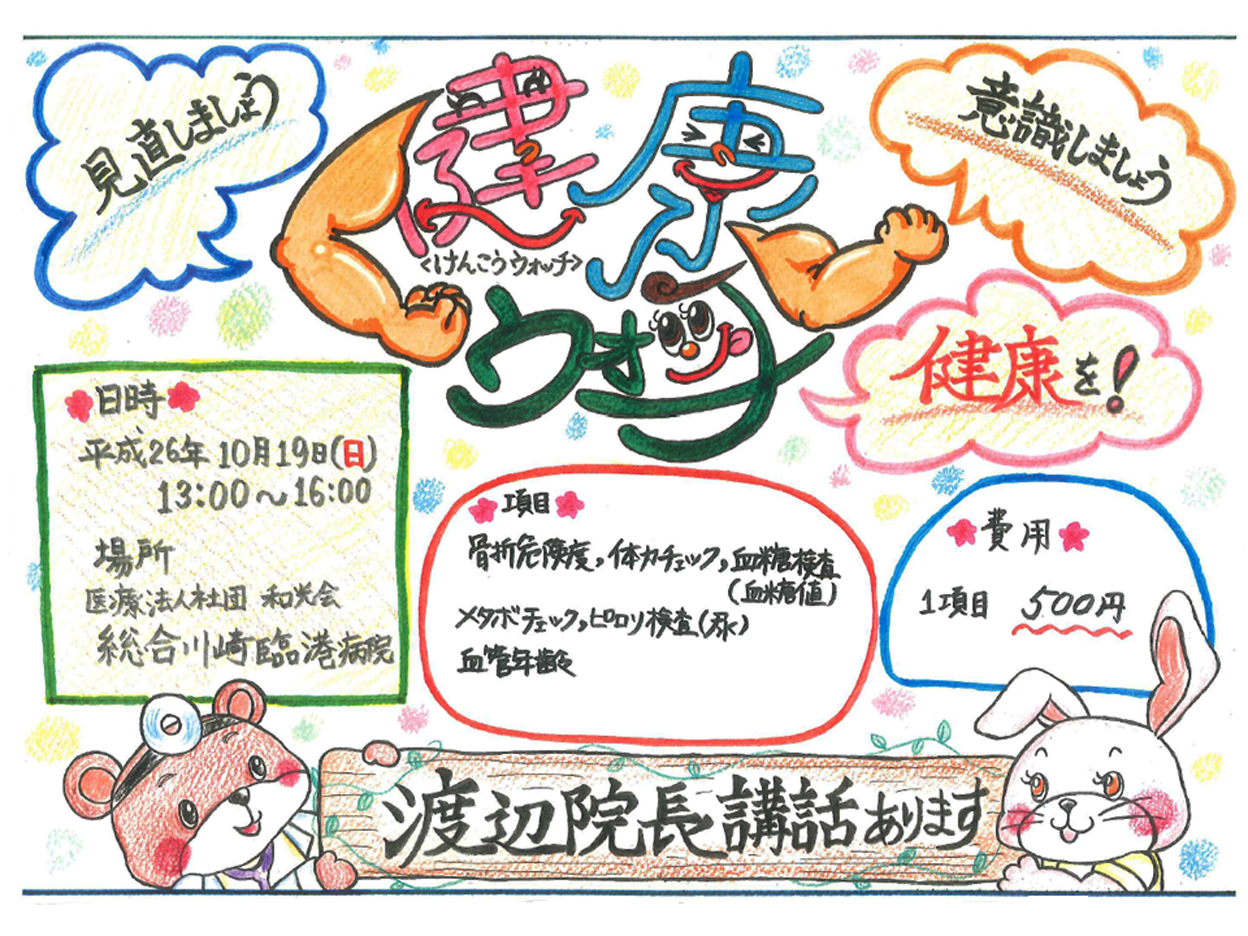 見直しましょう
健康
<けんこうウォッチ>
ウォッチ
意識しましょう
健康を!
日時
平成26年10月19日(日)
13:00～16:00
場所
医療法人社団 和光会
総合川崎臨港病院
項目
骨折危険度,体力チェック,血糖検査
(血糖値)
メタボチェック,ピロリ検査(尿)
血管年齢
費用
1項目 500円
渡辺院長講話あります